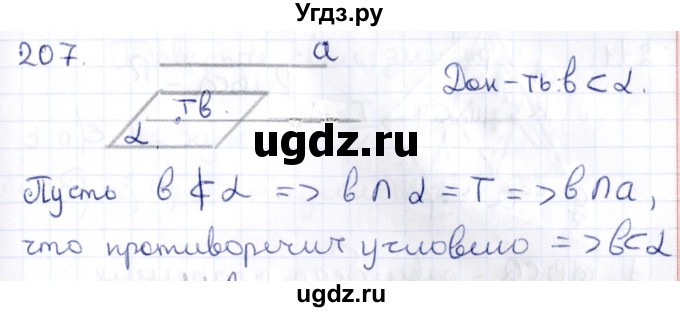 Угдз.ру
207. a
Док-ть: в ⊂ α.
Т в
α
ugdz.ru
Пусть в ⊄ α => в ∩ α = Т => в ∩ а,
что противоречит условию => в ⊂ α
ugdz.ru